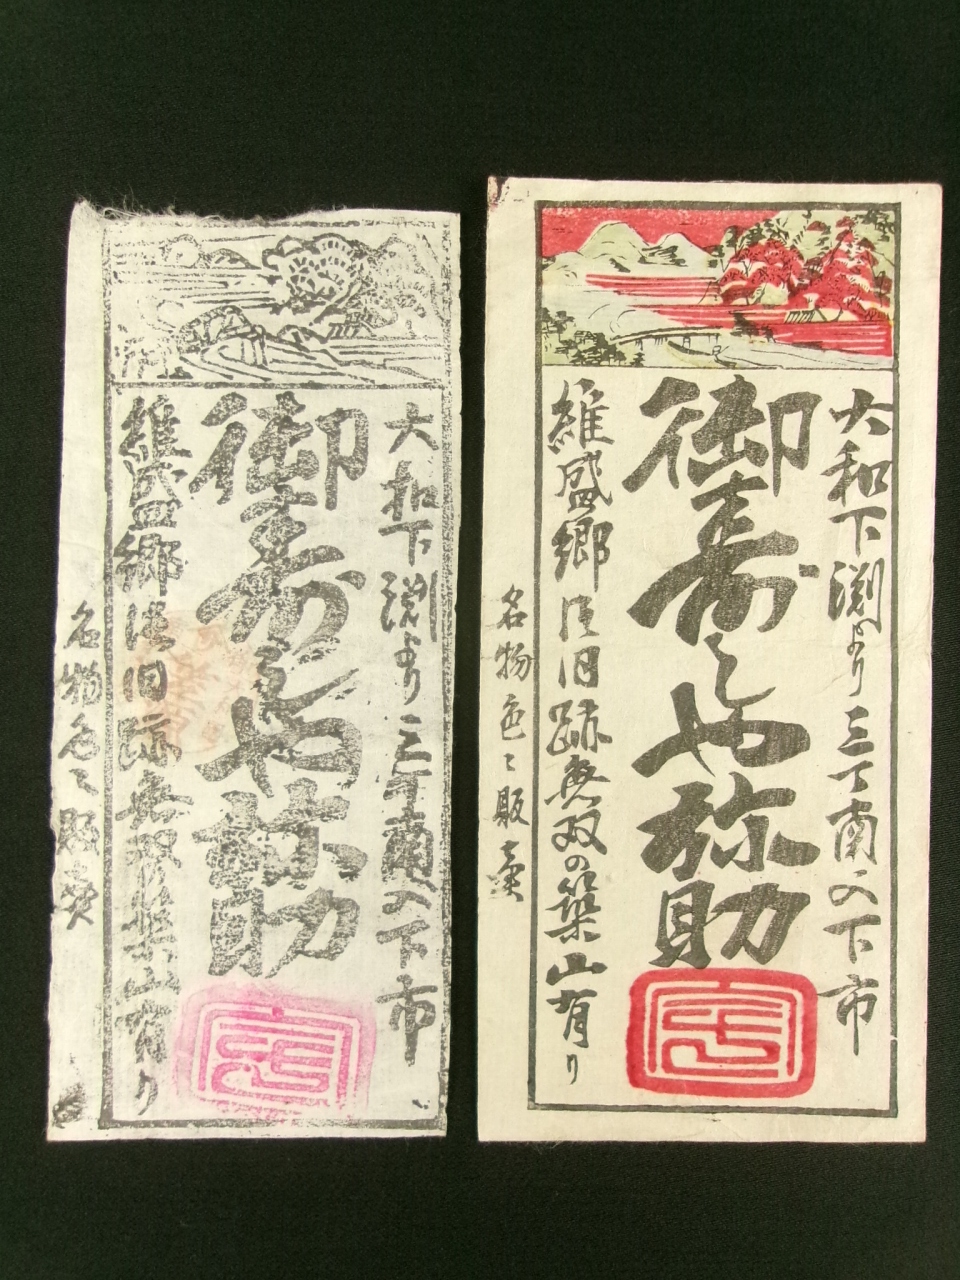 大和下渕より三丁南の下市
御寿しや弥助
維盛郷は旧跡無双の築山有り
名物色々販売
大和下渕より三丁南の下市
御寿しや弥助
維盛郷は旧跡無双の築山有り
名物色々販売